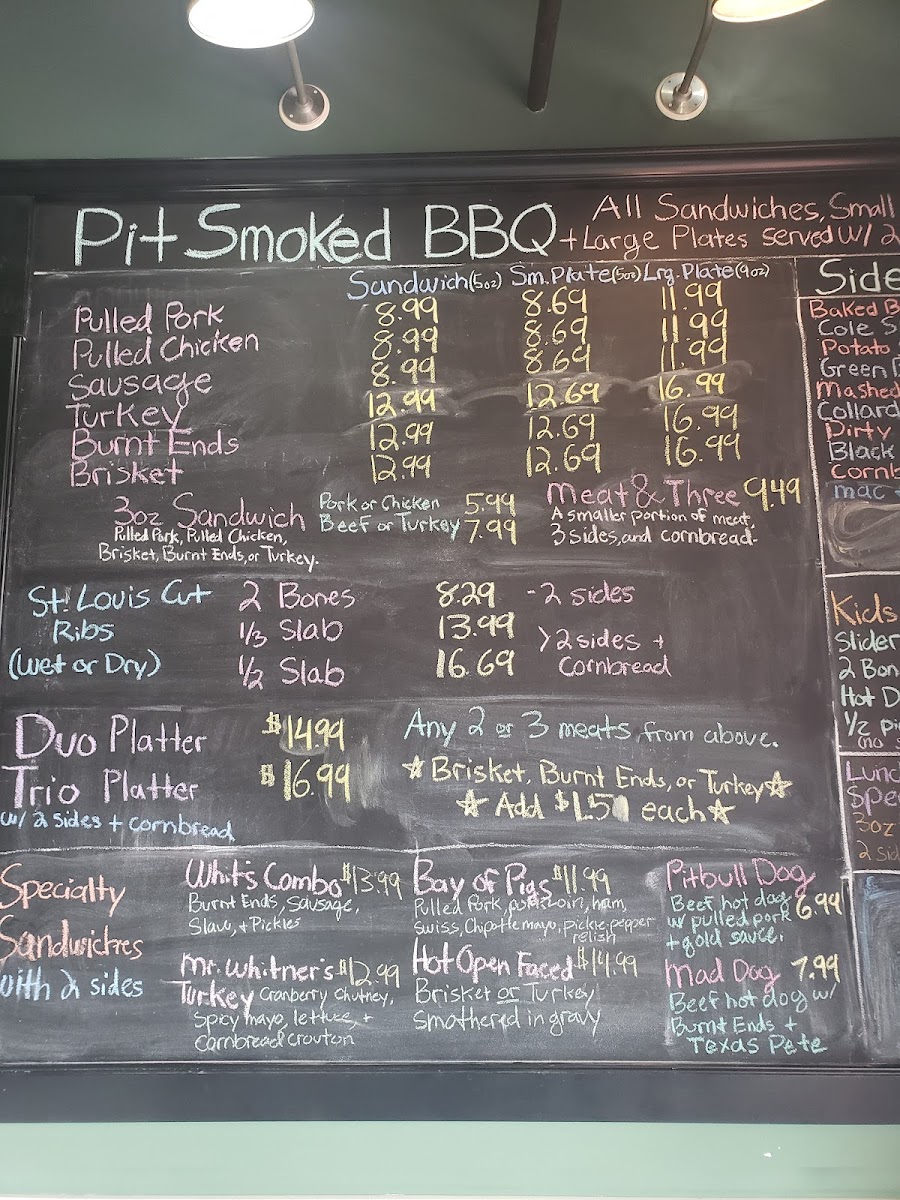 Pit Smoked BBQ
All Sandwiches, Small
+ Large Plates served w/ 2
Sandwich (5oz) Sm. Plate (5oz) Lrg. Plate (9oz)
Pulled Pork 8.99 8.69 11.99
Pulled Chicken 8.99 8.69 11.99
Sausage 8.99 8.69 11.99
Turkey 12.99 12.69 16.99
Burnt Ends 12.99 12.69 16.99
Brisket 12.99 12.69 16.99
3oz Sandwich
Pulled Pork, Pulled Chicken,
Brisket, Burnt Ends, or Turkey.
Pork or Chicken 5.99
Beef or Turkey 7.99
Meat & Three 9.49
A smaller portion of meat,
3 sides, and cornbread.
St. Louis Cut
Ribs
(Wet or Dry)
2 Bones 8.29 - 2 sides
1/3 Slab 13.99
1/2 Slab 16.69
> 2 sides +
Cornbread
Duo Platter $14.99
Trio Platter $16.99
w/ 2 sides + cornbread
Any 2 or 3 meats from above.
☆ Brisket, Burnt Ends, or Turkey ☆
☆ Add $1.50 each ☆
Specialty
Sandwiches
with 2 sides
Whit's Combo $13.99
Burnt Ends, Sausage,
Slaw, + Pickles
Mr. Whitner's $12.99
Turkey Cranberry Chutney,
Spicy mayo, lettuce, +
Cornbread crouton
Bay of Pigs $11.99
Pulled Pork, pork loin, ham,
Swiss, Chipotle mayo, pickle, pepper
relish
Hot Open Faced $14.99
Brisket or Turkey
Smothered in gravy
Pitbull Dog
Beef hot dog 6.99
w/ pulled pork
+ gold sauce.
Mad Dog 7.99
Beef hot dog w/
Burnt Ends +
Texas Pete
Side
Baked B
Cole S
Potato
Green
Mashed
Collard
Dirty
Black
Cornb
mac
Kids
Slider
2 Bon
Hot D
1/2 Pi
(no s
Lunc
Spe
3oz
2 sid